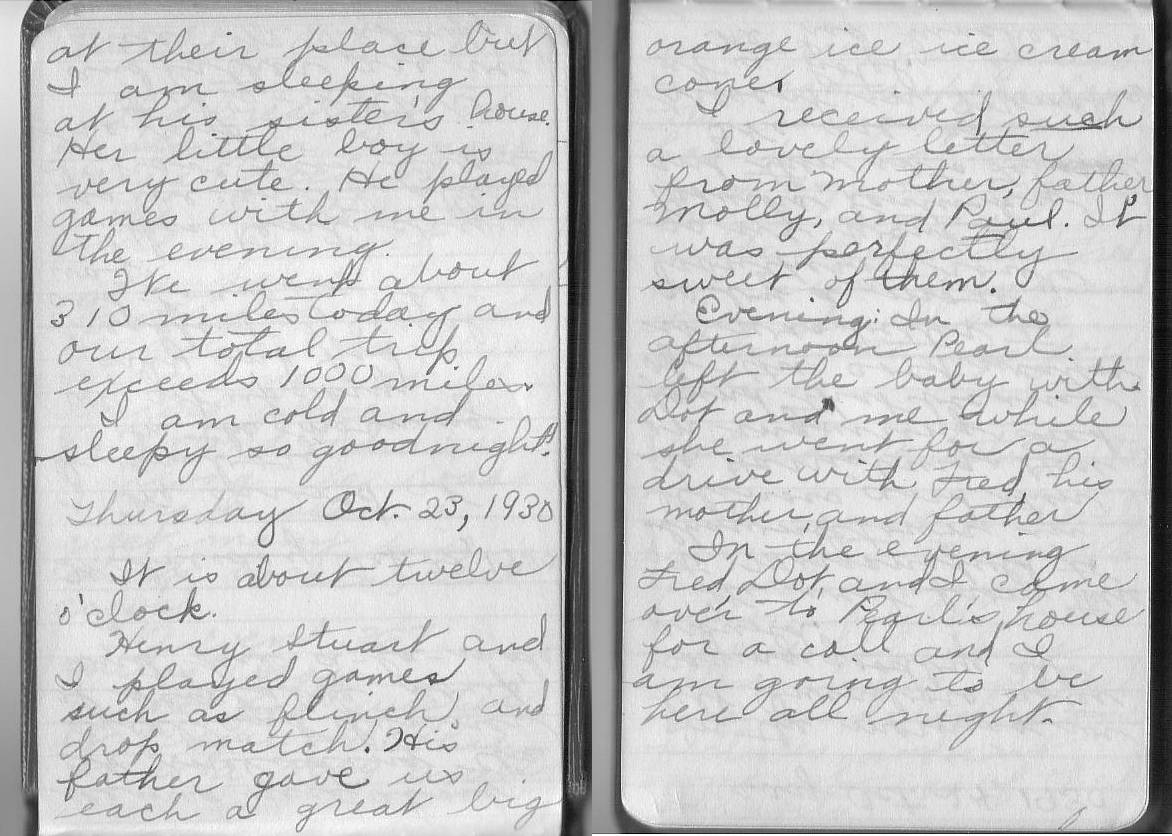 at their place but
I am sleeping
at his sister's house.
Her little boy is
very cute. He played
games with me in
the evening.
We went about
310 miles today and
our total trip
exceeds 1000 miles.
I am cold and
sleepy so goodnight!
Thursday Oct. 23, 1930
It is about twelve
o'clock.
Henry Stuart and
I played games
such as flinch, and
drop match. His
father gave us
each a great big
orange ice ice cream
cone.
I received such
a lovely letter
from mother, father
Molly, and Paul. It
was perfectly
sweet of them.
Evening: In the
afternoon Pearl
left the baby with
Dot and me while
she went for a
drive with Fred, his
mother, and father
In the evening
Fred, Dot, and I came
over to Pearl's house
for a call and I
am going to be
here all night.